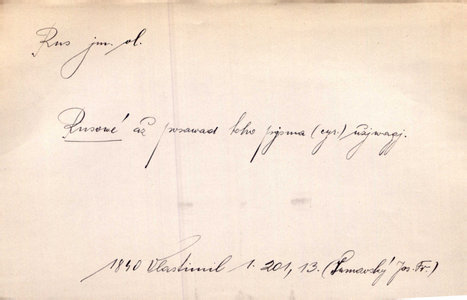 Rus jm. ol.
Rusowé až posawad toho pjsma (cyr.) užjwagj.
1840 Vlastimil 1. 201, 13. (Šumavský Jos. Fr.)